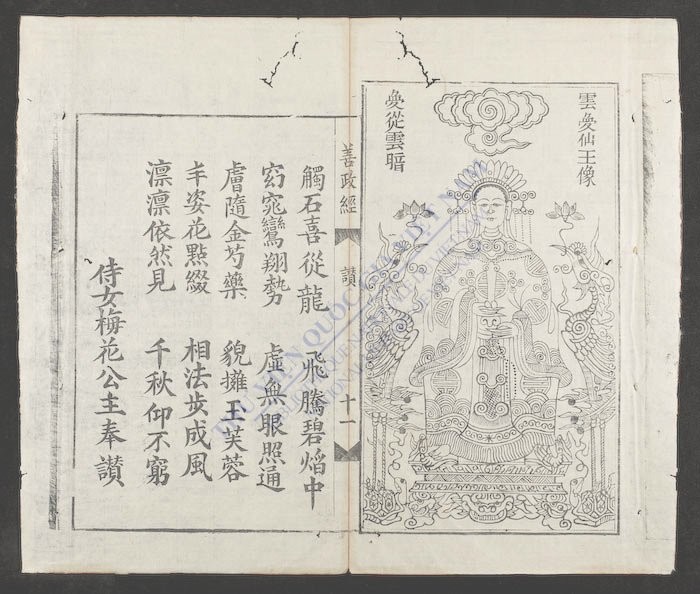 雲㚞仙王像
㚞從雲暗
善政經 讃 十一
觸石喜從龍 飛騰碧焰中
窈窕鸞翔勢 虛無眼照通
膚隨金芍藥 貌擁王芙蓉
丰姿花點綴 相法步成風
凛凛依然見 千秋仰不窮
侍女梅花公主奉讃
THƯ VIỆN QUỐC GIA VIỆT NAM